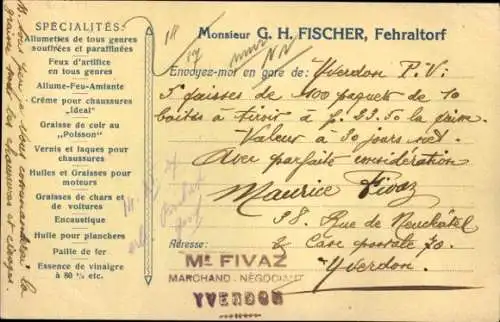 SPÉCIALITÉS:
Allumettes de tous genres
souffrées et paraffinées
Feux d'artifice
en tous genres
Allume-Feu-Amiante
Crème pour chaussures
„Ideal"
Graisse de coir au
„Poisson"
Vernis et laques pour
chaussures
Huiles et Graisses pour
moteurs
Graisses de chars et
de voitures
Encaustique
Huile pour planchers
Paille de fer
Essence de vinaigre
à 80 % etc.
Monsieur G. H. FISCHER, Fehraltorf
Envoyez-moi en gare de: Yverdon P.V:
5 caisses de 100 paquets de 10
boîtes à tiroir à fr 23.50 la caisse.
Valeur à 30 jours net.
Avec parfaite considération
Maurice Fivaz
38. Rue de Neuchâtel
Adresse: & Case postale 70.
Yverdon.
Mce FIVAZ
MARCHAND-NÉGOCIANT
YVERDON